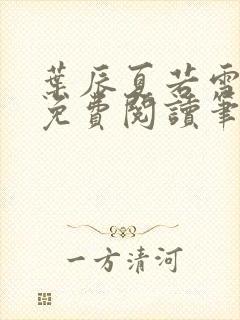 葉辰夏若雪
免費閱讀筆
一方清河